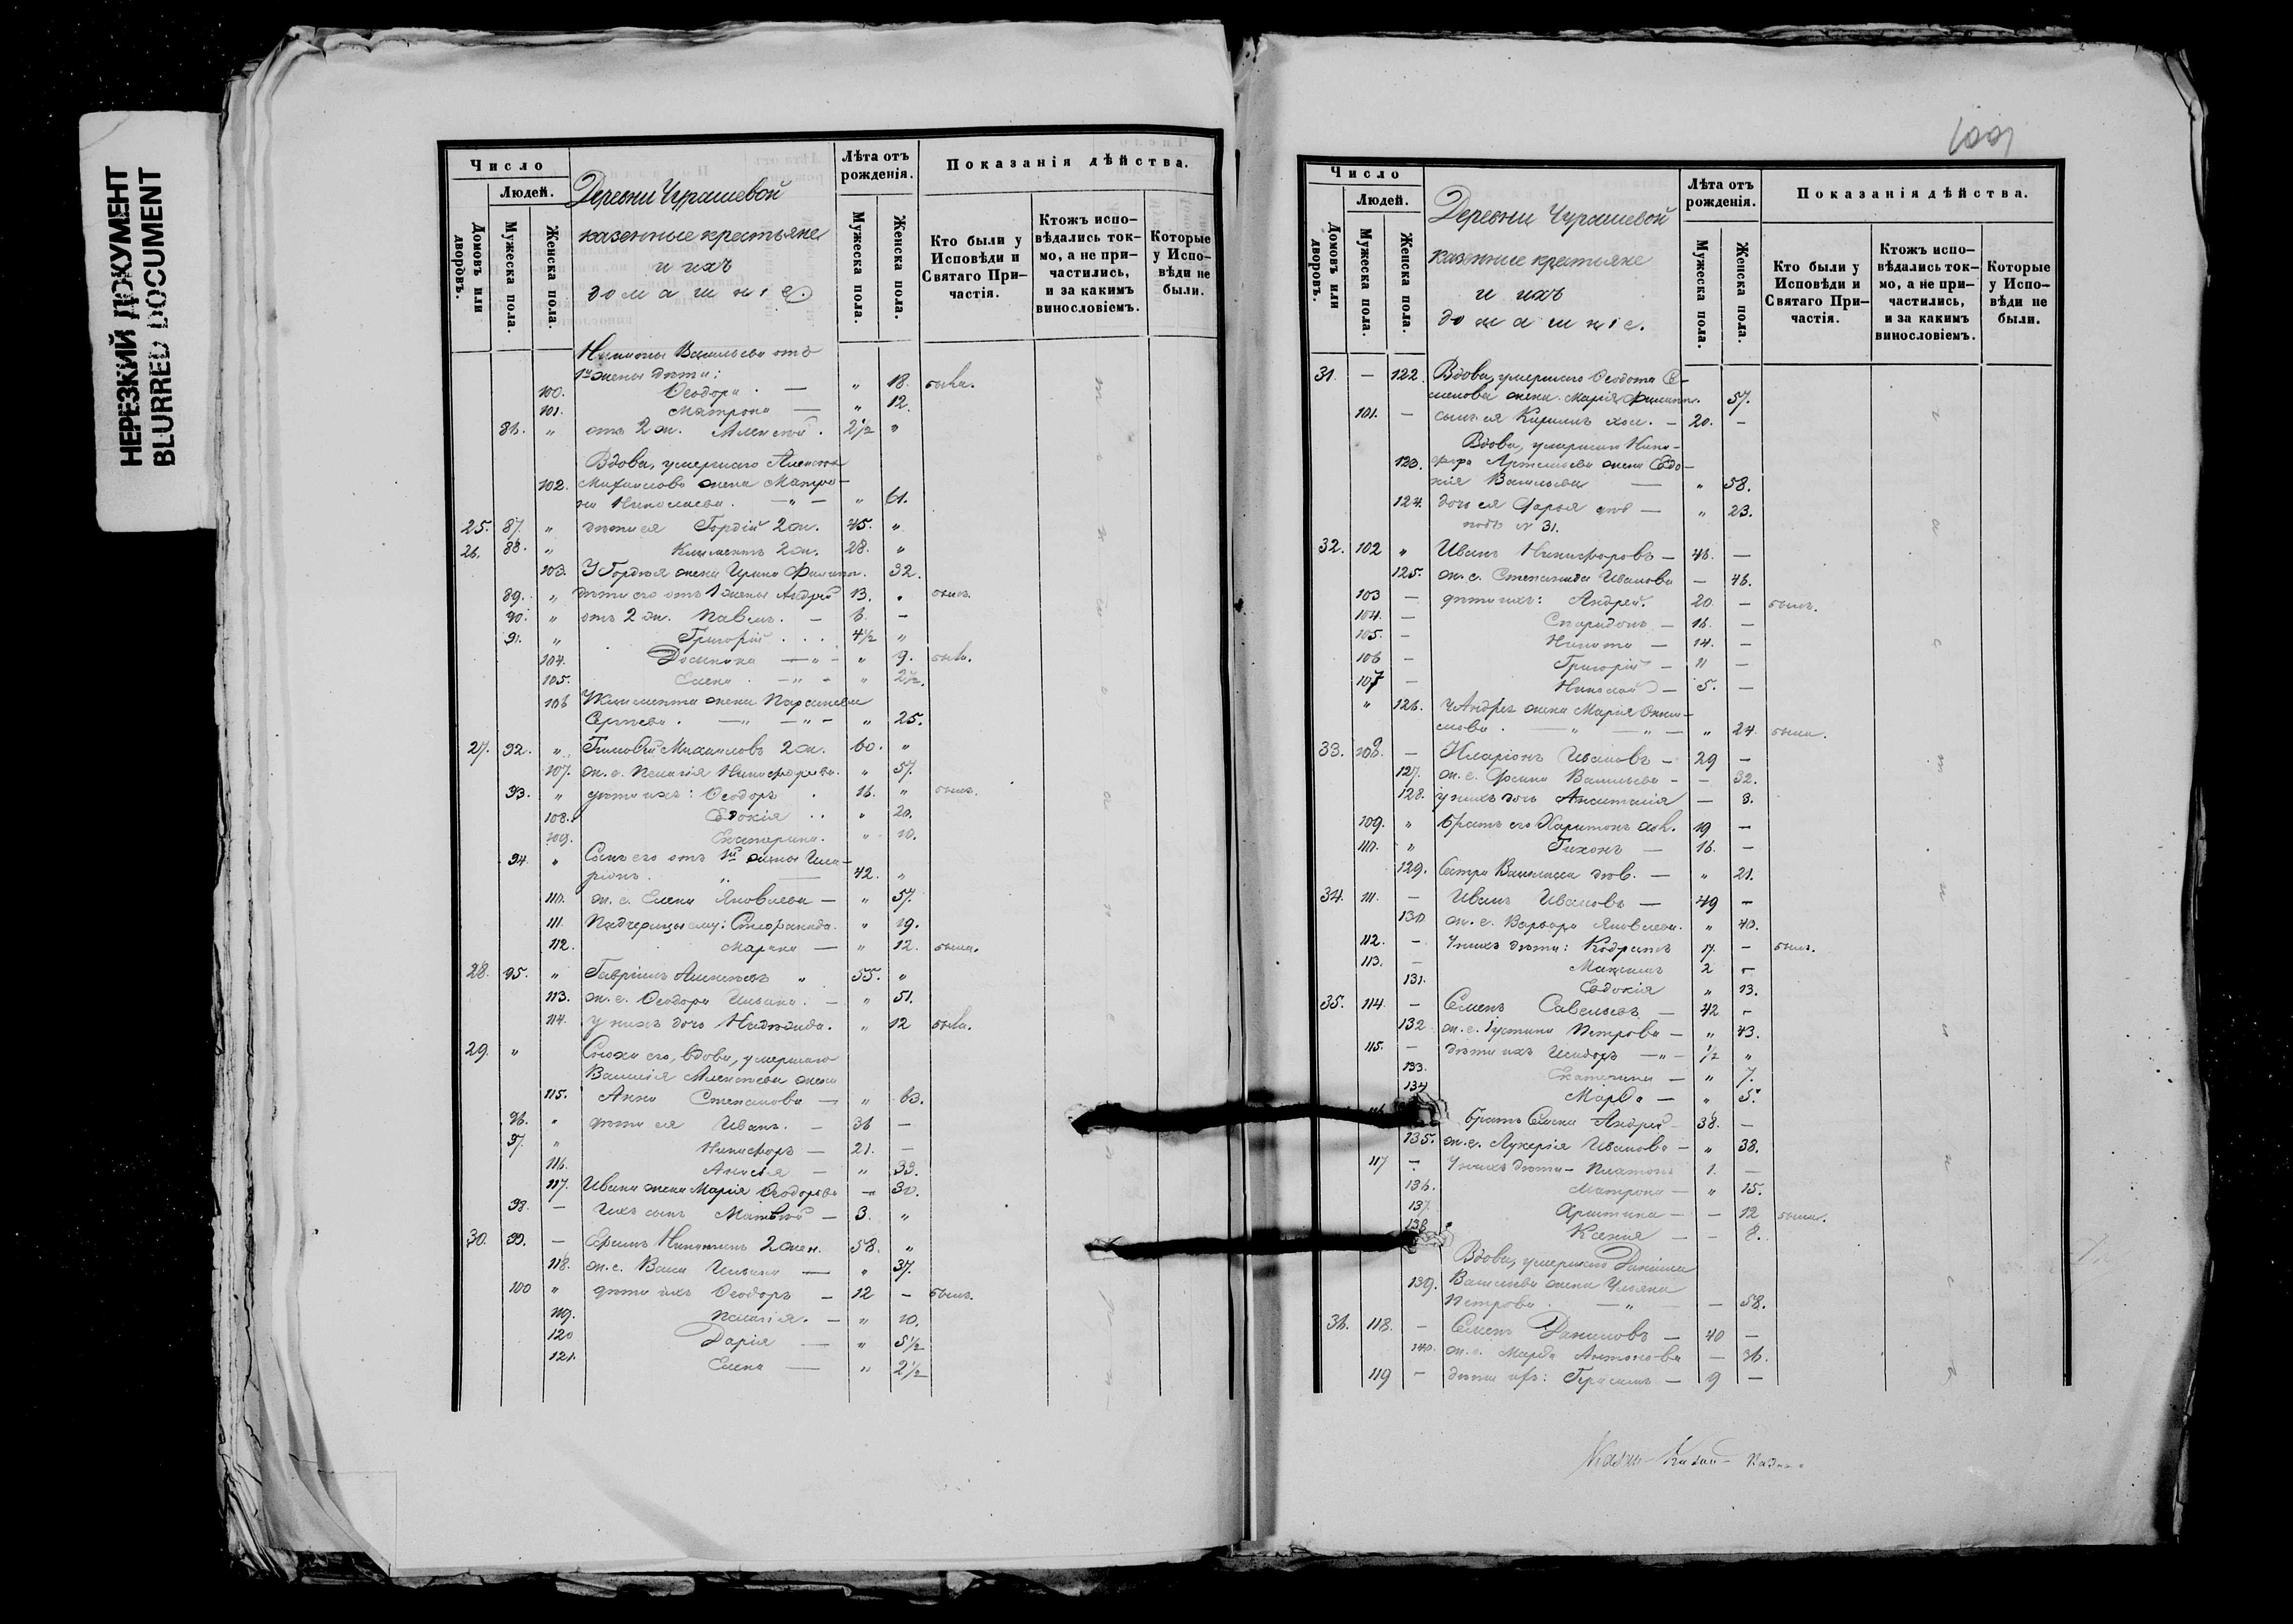 НЕРЕЗКИЙ ДОКУМЕНТ
BLURRED DOCUMENT
Число
Людей.
Домовъ или дворовъ.
Мужеска пола.
Женска пола.
Деревни Чурашевой
казенные крестьяне
и ихъ
домашніе.
Лѣта отъ рожденія.
Мужеска пола.
Женска пола.
Показанія дѣйства.
Кто были у Исповѣди и Святаго Причастія.
Ктожъ исповѣдались токмо, а не причастились, и за какимъ винословіемъ.
Которые у Исповѣди не были.
Васильева отъ
1й жены дѣти:
100. Ѳеодора — " 18. была.
101. Матрона — " 12.
86. " отъ 2 ж. Алексѣй. 2½ "
Вдова, умершаго Алексея
102. Михайлова жена Матро-
на Николаева. — " — " 61.
25. 87. " дѣти ея Гордій 2 ж. 45. "
26. 88. " Климентъ 2 ж. 28. "
103. У Гордѣя жена Ирина Филипп. 32.
89. " дѣти его отъ 1 жены Андрей 13. " былъ.
90. " отъ 2 ж. Павелъ. — 6. —
91. " Григорій . . . 4½ "
104. Домника — " — " 9. была.
105. Елена — " — " 2½.
106 Климента жена Параскева
Сергѣева. — " — " — " 25.
27. 92. " Михайловъ 2 ж. 60. "
107. ж. е. Пелагія Никифорова. " 57.
93. " дѣти ихъ: Ѳеодоръ . 16. " былъ.
108. Евдокія . . " 20.
109. Екатерина. " 10.
94. " Сынъ его отъ 1й жены Ила-
ріонъ. " — 42. "
110. ж. е. Елена Яковлева — " 57.
111. Падчерицы ему: Стефанида. " 19.
112. Марина — " 12. была.
28. 95. " Гавріилъ Алексѣевъ " 55. "
113. ж. е. Ѳеодора Ильина. — " 51.
114. у нихъ дочь Надежда. " 12 была.
29. " Сноха его, вдова, умершаго
Василія Алексѣева жена
115. Анна Степанова — " 63.
96. " дѣти ея Иванъ. — 36 —
97. " Никифоръ — 21. —
116. Анисія — " 33.
117. Ивана жена Марія Ѳеодорова — " 30.
98. — Ихъ сынъ Матвѣй — 3. "
30. 99. — Ефимъ Никитинъ 2 жен. 58. "
118. ж. е. Васса Ильина — " 37.
100 " дѣти ихъ Ѳеодоръ — 12 — былъ.
119. Пелагія. — " 10.
120 Дарія — " 5½
121. Елена — " 2½
Число
Людей.
Домовъ или дворовъ.
Мужеска пола.
Женска пола.
Деревни Чурашевой
казенные крестьяне
и ихъ
домашніе.
Лѣта отъ рожденія.
Мужеска пола.
Женска пола.
Показанія дѣйства.
Кто были у Исповѣди и Святаго Причастія.
Ктожъ исповѣдались токмо, а не причастились, и за какимъ винословіемъ.
Которые у Исповѣди не были.
31. — 122. Вдова, умершаго Ѳеодота Се-
менова жена Марія Филипп. 57.
101. — сынъ ея Кириллъ хол. — 20. —
Вдова, умершаго Ники-
123. фора Артемьева жена Евдо-
кія Васильева — " 58.
124. дочь ея Дарья — " 23.
подъ № 31.
32. 102 " Иванъ Никифоровъ — 46. —
125. ж. е. Степанида Иванова — 46.
103 — дѣти ихъ: Андрей. 20. — былъ.
104. — Спиридонъ — 16. —
105. — Никита — 14. —
106 — Григорій — 11 —
107 — Николай — 5. —
" 126. У Андрея жена Марія
— " — " — " 24. была.
33. 108. — Иларіонъ Ивановъ — 29 —
127. ж. е. Васильева — — 32.
128. у нихъ дочь Анастасія — 3.
109. " братъ его Харитонъ хол. 19 —
110. " Тихонъ — 16. —
129. Сестра Василиса дѣв. — " 21.
34. 111. — Иванъ Ивановъ — 49 —
130 ж. е. Варвара Яковлева. " 40.
112. — У нихъ дѣти: Кодратъ 17. — былъ.
113. — Максимъ 2 —
131. Евдокія " 13.
35. 114. — Семенъ Савельевъ — 42 —
132 ж. е. Іустина Петрова — " 43.
115. — дѣти ихъ Исидоръ — " — ½ "
133. Екатерина — " 7.
134 Марѳа — " 5.
братъ Семена Андрей 38. —
135. ж. е. Лукерія Иванова — " 38.
117 — У нихъ дѣти — Платонъ 1. —
136. Матрона — " 15.
137. Христина — — 12 была.
138 Ксенія — — 8.
Вдова, умершаго Даніила
139. Васильева жена Ульяна
Петрова. — " — — 58.
36. 118. — Семенъ Даниловъ — 40 —
140. ж. е. Марѳа Антонова — 36.
119 — дѣти ихъ: Герасимъ — 9 —